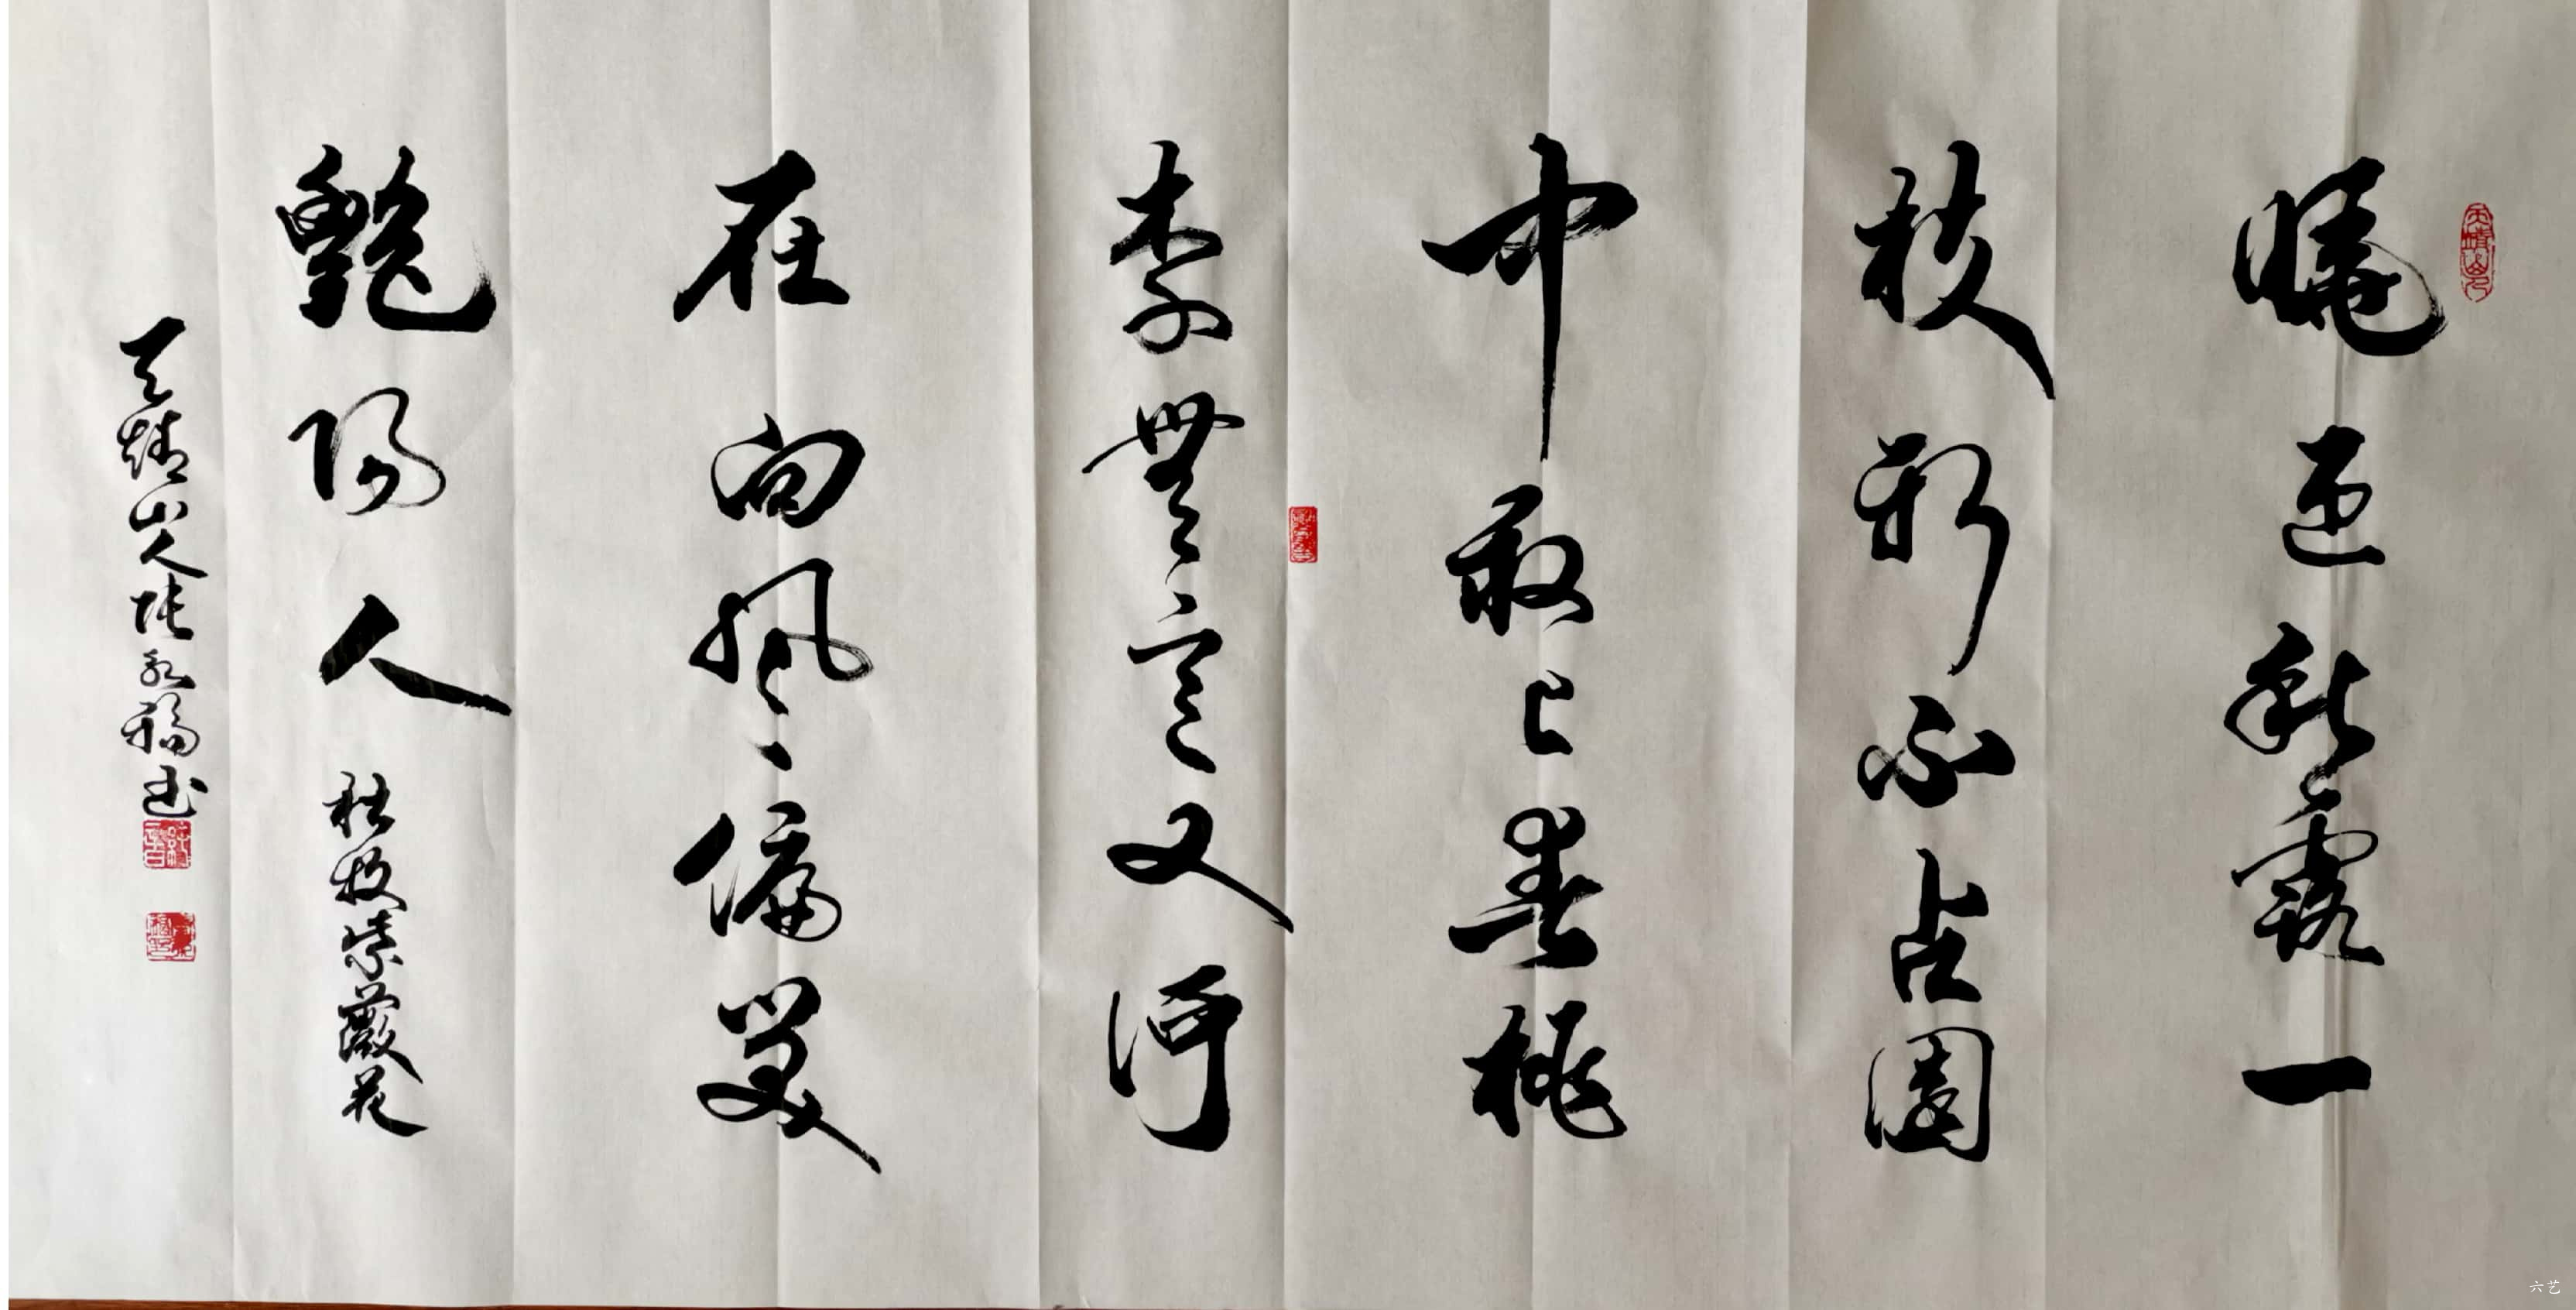 曉迎秋露一
枝新不占園
中最上春桃
李無言又何
在向風偏笑
艷陽人 杜牧紫薇花
天靖山人張永福書
六艺